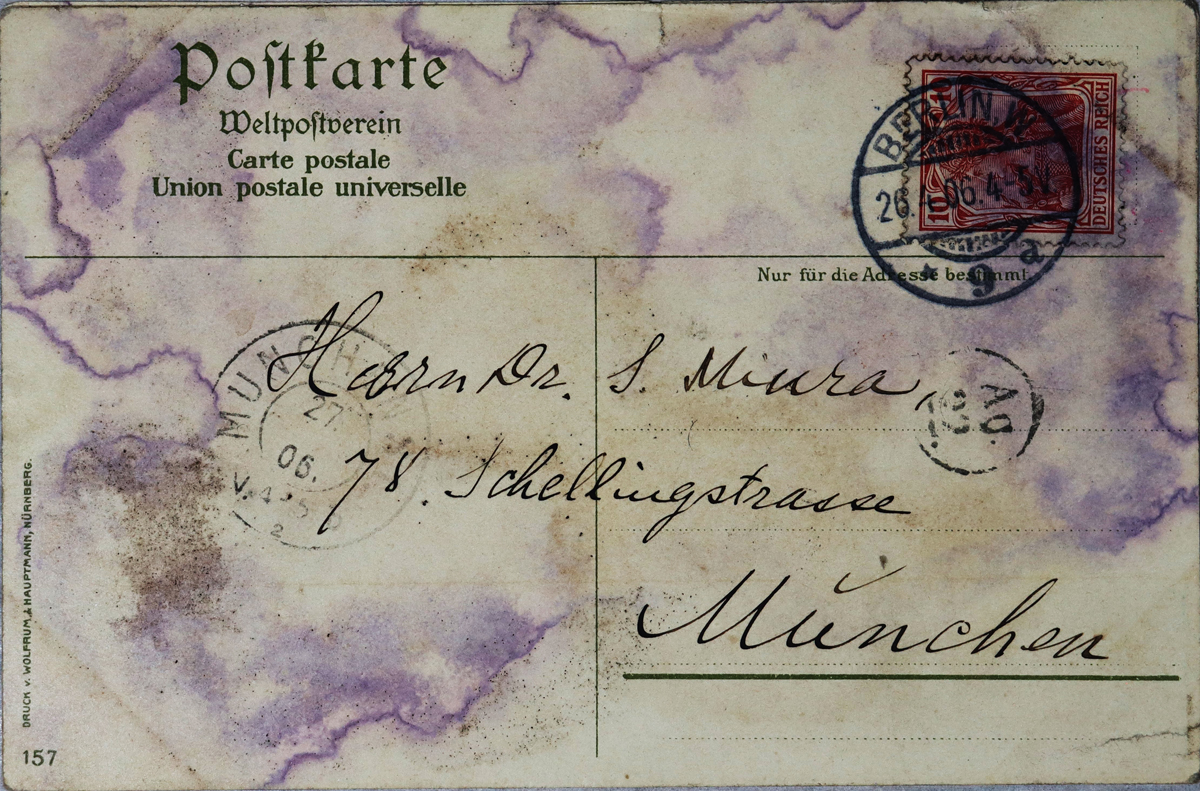 Postkarte
Weltpostverein
Carte postale
Union postale universelle
10 10
DEUTSCHES REICH
BERLIN W
26.4.06.4-5V.
* 9 a
Nur für die Adresse bestimmt.
MÜNCHEN
27
06.
2
Herrn Dr. S. Miura,
78. Schellingstrasse
München
DRUCK v. WOLFRUM & HAUPTMANN, NÜRNBERG.
157